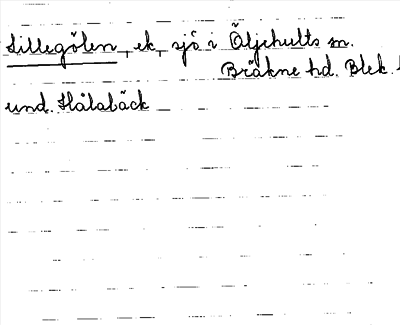 Lillegölen, ek, sjö i Öljehults sn.
Bräkne hd. Blek.
und. Hålabäck